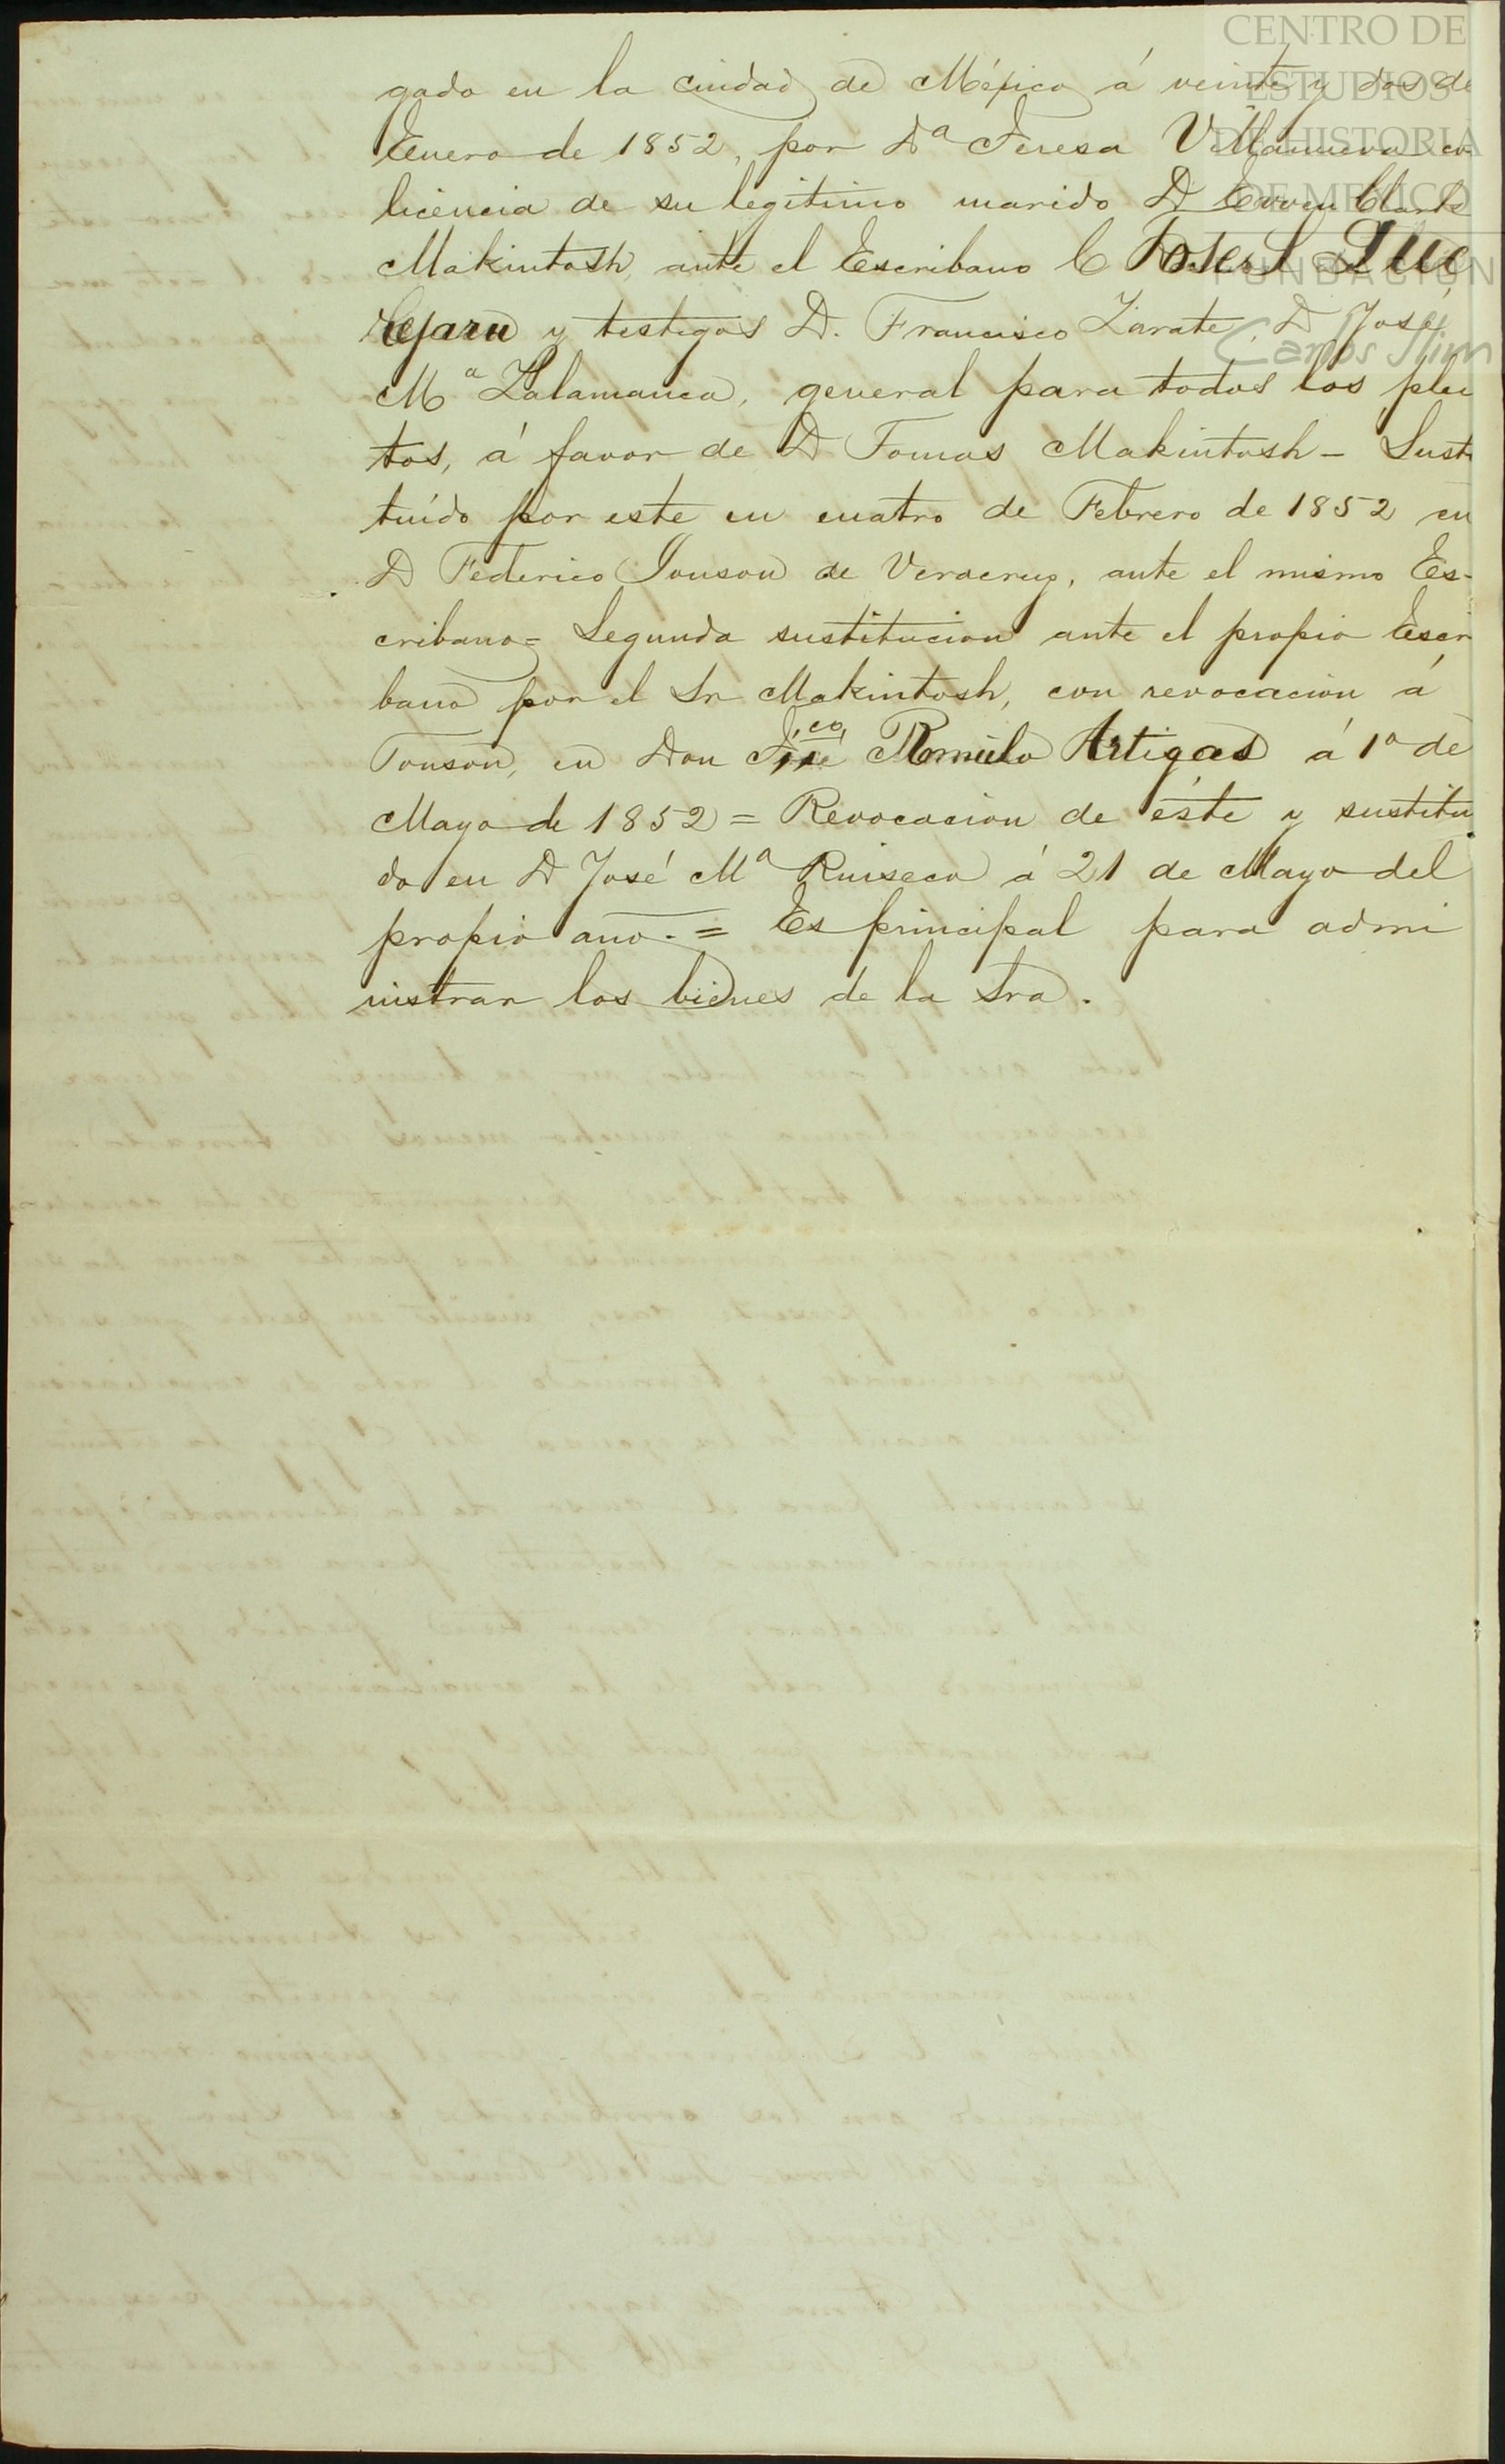 CENTRO DE
ESTUDIOS
DE HISTORIA
DE MEXICO
FUNDACIÓN
Carlos Slim
gado en la ciudad de México á veinte y dos de
Enero de 1852, por Dª Teresa Villanueva con
licencia de su legitimo marido D Ewen Clark
Makintosh, ante el Escribano C
y testigos D. Francisco Zarate, D José
Mª Zalamanca, general para todos los plei
tos, á favor de D Tomas Makintosh - Susti
tuído por este en cuatro de Febrero de 1852 en
D Federico Jonson de Veracruz, ante el mismo Es-
cribano = Segunda sustitucion ante el propio Escri
bano por el Sr Makintosh, con revocacion á
Jonson, en Don Romúlo Artigas á 1º de
Mayo de 1852 = Revocacion de éste y sustitui
do en D José Mª Ruiseco á 21 de Mayo del
propio ano. = Es principal para admi
nistrar los bienes de la Sra.